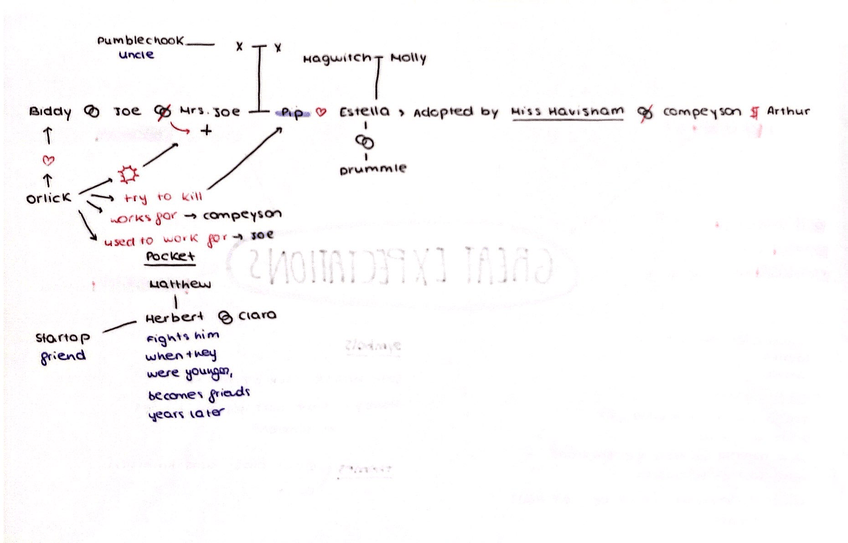 Pumblechook
uncle
x x
Magwitch Molly
Biddy Joe Mrs. Joe Pip Estella > Adopted by Miss Havisham Compeyson Arthur
Drummle
Orlick
try to kill
works for → compeyson
used to work for → Joe
Pocket
Matthew
Herbert Clara
Startop
friend
Fights him
when they
were younger,
becomes frieds
years later
GREAT EXPECTATIONS